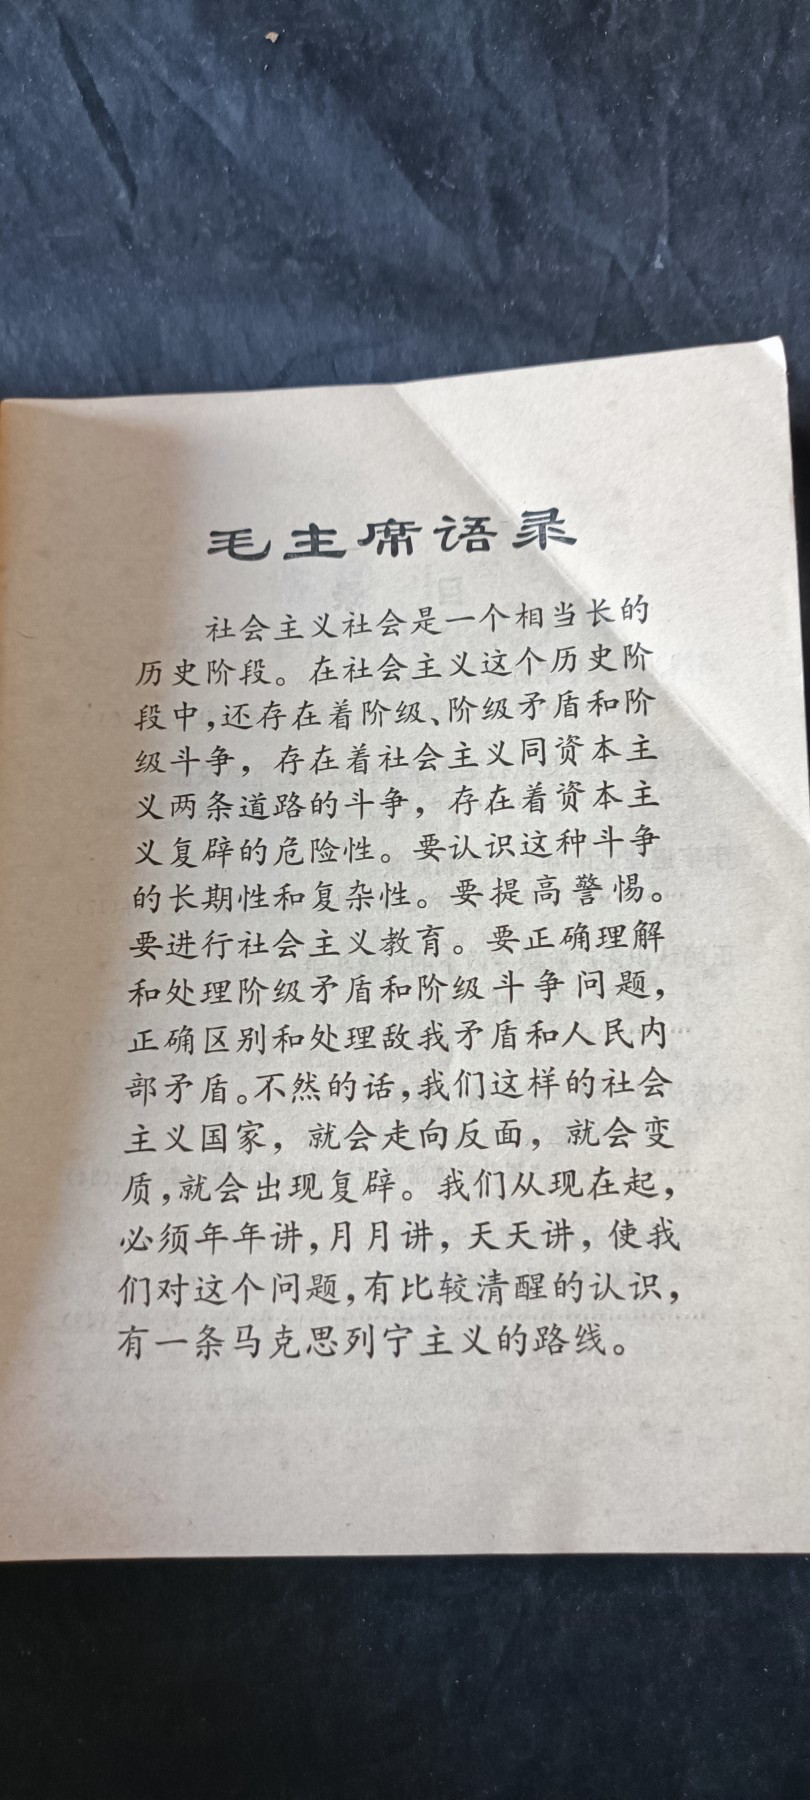 毛主席语录
社会主义社会是一个相当长的
历史阶段。在社会主义这个历史阶
段中，还存在着阶级、阶级矛盾和阶
级斗争，存在着社会主义同资本主
义两条道路的斗争，存在着资本主
义复辟的危险性。要认识这种斗争
的长期性和复杂性。要提高警惕。
要进行社会主义教育。要正确理解
和处理阶级矛盾和阶级斗争问题，
正确区别和处理敌我矛盾和人民内
部矛盾。不然的话，我们这样的社会
主义国家，就会走向反面，就会变
质，就会出现复辟。我们从现在起，
必须年年讲，月月讲，天天讲，使我
们对这个问题，有比较清醒的认识，
有一条马克思列宁主义的路线。